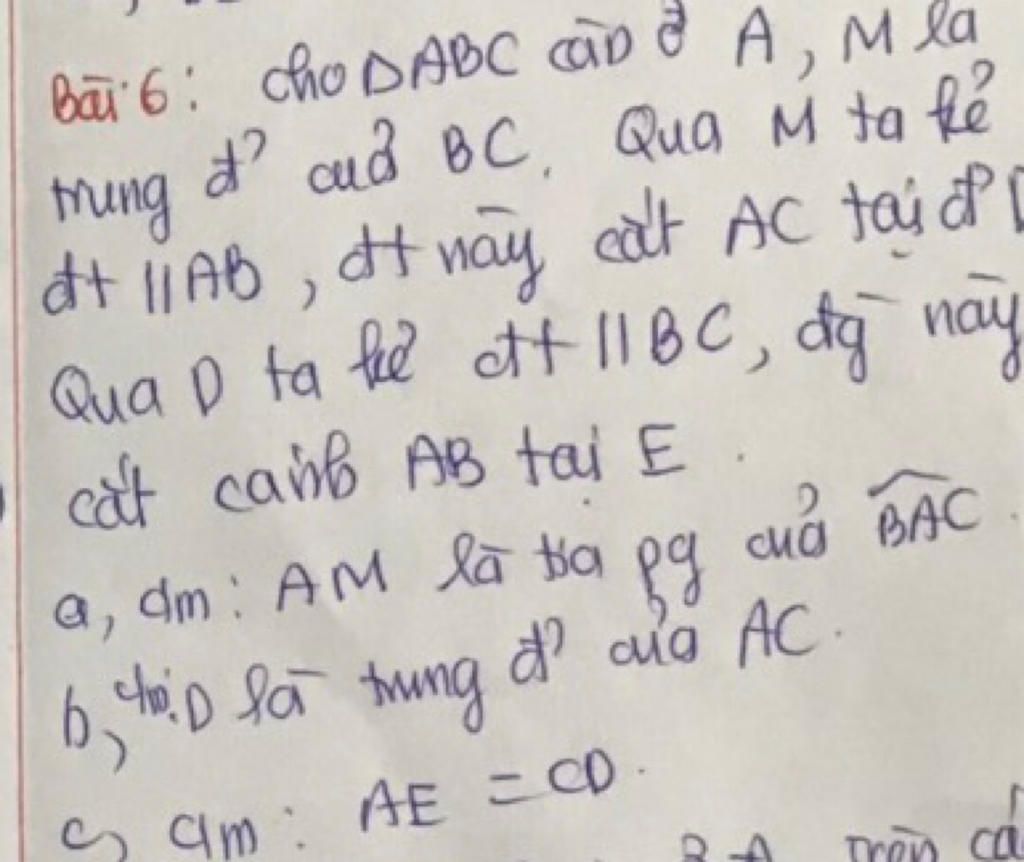 Bài 6: Cho ΔABC cân ở A, M là
trung đ² cuả BC. Qua M ta kẻ
đt // AB, đt này cắt AC tại đ²
Qua D ta kẻ đt // BC, đg này
cắt cạnh AB tại E.
a, cm: AM là tia pg cuả BAC.
b, cm: D là trung đ² của AC.
c, cm: AE = CD.